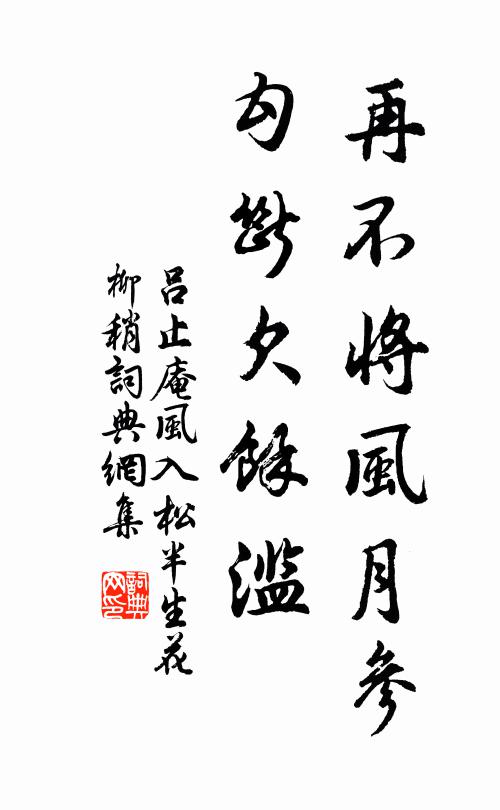 再不將風月參
勾斷欠餘濫
呂止庵風入松半生花
柳稍詞典網集
詞典網印